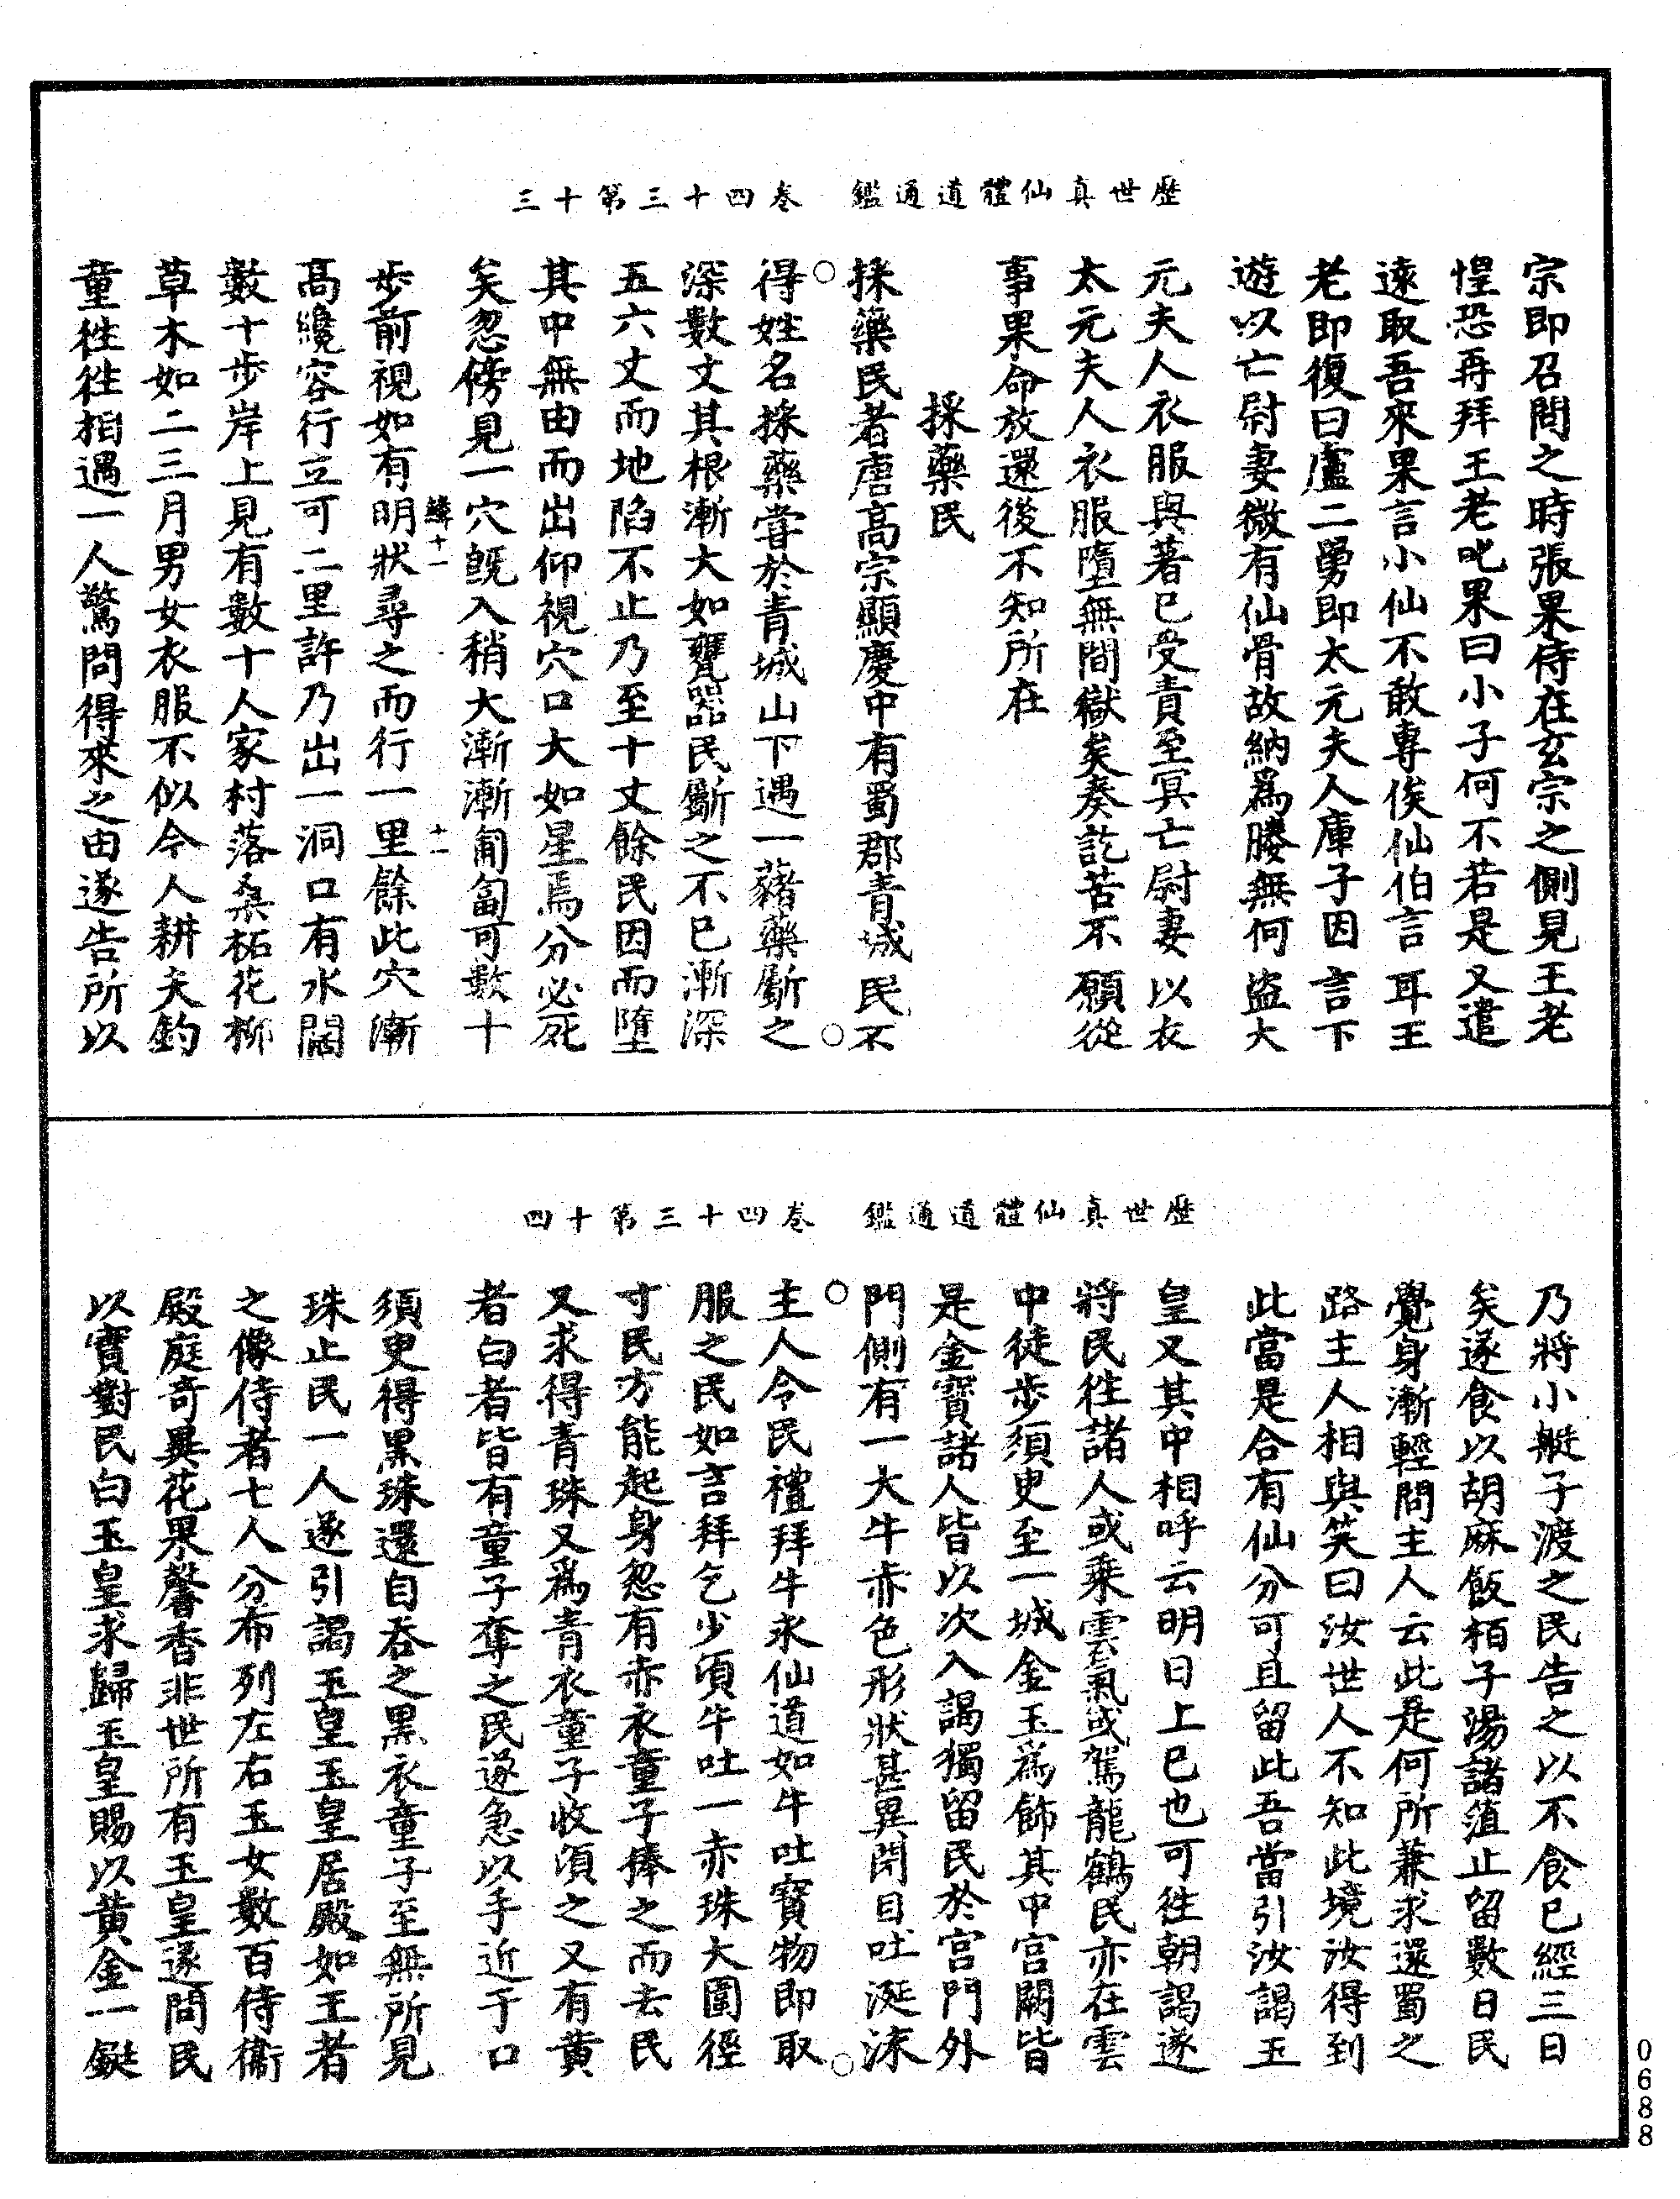 歷世真仙體道通鑑　卷四十三第十三
宗即召問之時張果侍在玄宗之側見王老
惶恐再拜王老叱果曰小子何不若是又遣
遠取吾來果言小仙不敢專俟仙伯言耳王
老即復曰盧二舅即太元夫人庫子因言下
遊以亡尉妻微有仙骨故納爲媵無何盜太
元夫人衣服與著已受責至冥亡尉妻以衣
太元夫人衣服墮無間獄矣奏訖苦不願從
事果命放還後不知所在
採藥民
採藥民者唐高宗顯慶中有蜀郡青城民不
得姓名採藥嘗於青城山下遇一藷藥斸之
深數丈其根漸大如甕器民斸之不已漸深
五六丈而地陷不止乃至十丈餘民因而墮
其中無由而出仰視穴口大如星焉分必死
矣忽傍見一穴既入稍大漸漸匍匐可數十
十一
步前視如有明狀尋之而行一里餘此穴漸
高纔容行立可二里許乃出一洞口有水闊
數十步岸上見有數十人家村落桑柘花柳
草木如二三月男女衣服不似今人耕夫釣
童徃徃相遇一人驚問得來之由遂告所以
歷世真仙體道通鑑　卷四十三第十四
乃將小艇子渡之民告之以不食已經三日
矣遂食以胡麻飯栢子湯諸葅止留數日民
覺身漸輕問主人云此是何所兼求還蜀之
路主人相與笑曰汝世人不知此境汝得到
此當是合有仙分可且留此吾當引汝謁玉
皇又其中相呼云明日上巳也可徃朝謁遂
將民徃諸人或乘雲氣或駕龍鶴民亦在雲
中徒步須臾至一城金玉爲飾其中宮闕皆
是金寶諸人皆以次入謁獨留民於宮門外
門側有一大牛赤色形狀甚異閉目吐涎沫
主人令民禮拜牛求仙道如牛吐寶物即取
服之民如言拜乞少頃牛吐一赤珠大圍徑
寸民方能起身忽有赤衣童子捧之而去民
又求得青珠又爲青衣童子收須之又有黃
者白者皆有童子奪之民遂急以手近于口
須臾得黑珠還自吞之黑衣童子至無所見
珠止民一人遂引謁玉皇玉皇居殿如王者
之像侍者七人分布列左右玉女數百侍衛
殿庭奇異花果馨香非世所有玉皇遂問民
以實對民白玉皇求歸玉皇賜以黃金一鋌
0688